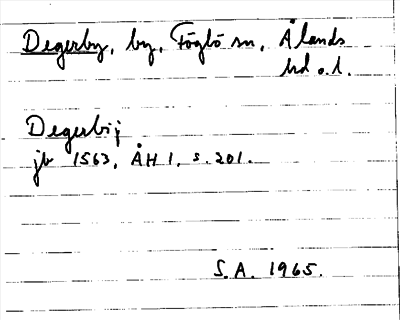 Degerby, by, Föglö sn, Ålands
hd o. l.
Degerbij
jb 1563, ÅH 1, s. 201.
S.A. 1965.